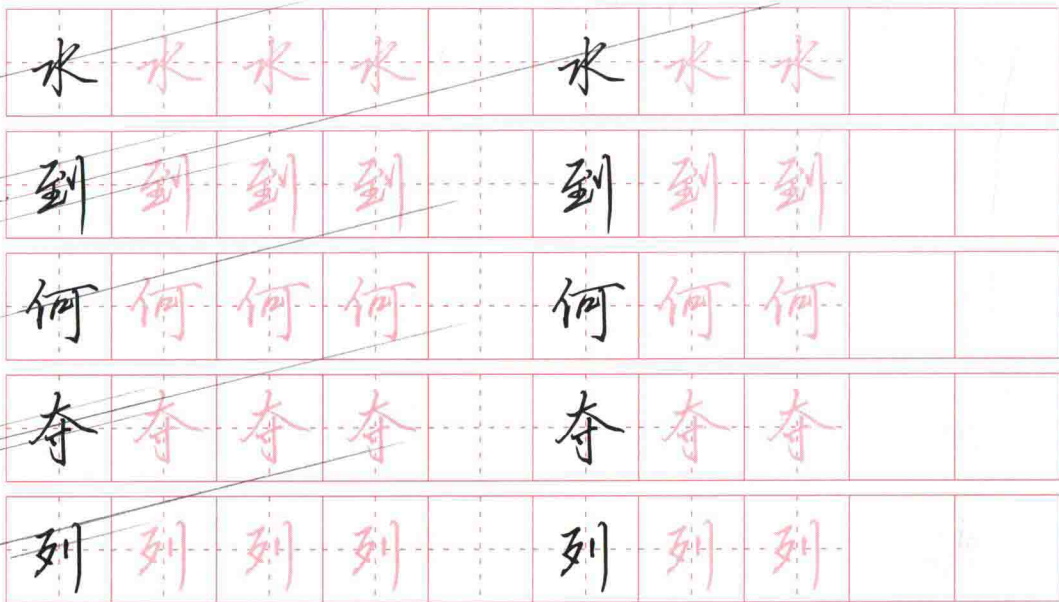 水水水水水水水
到到到到到到到
何何何何何何何
夺夺夺夺夺夺夺
列列列列列列列